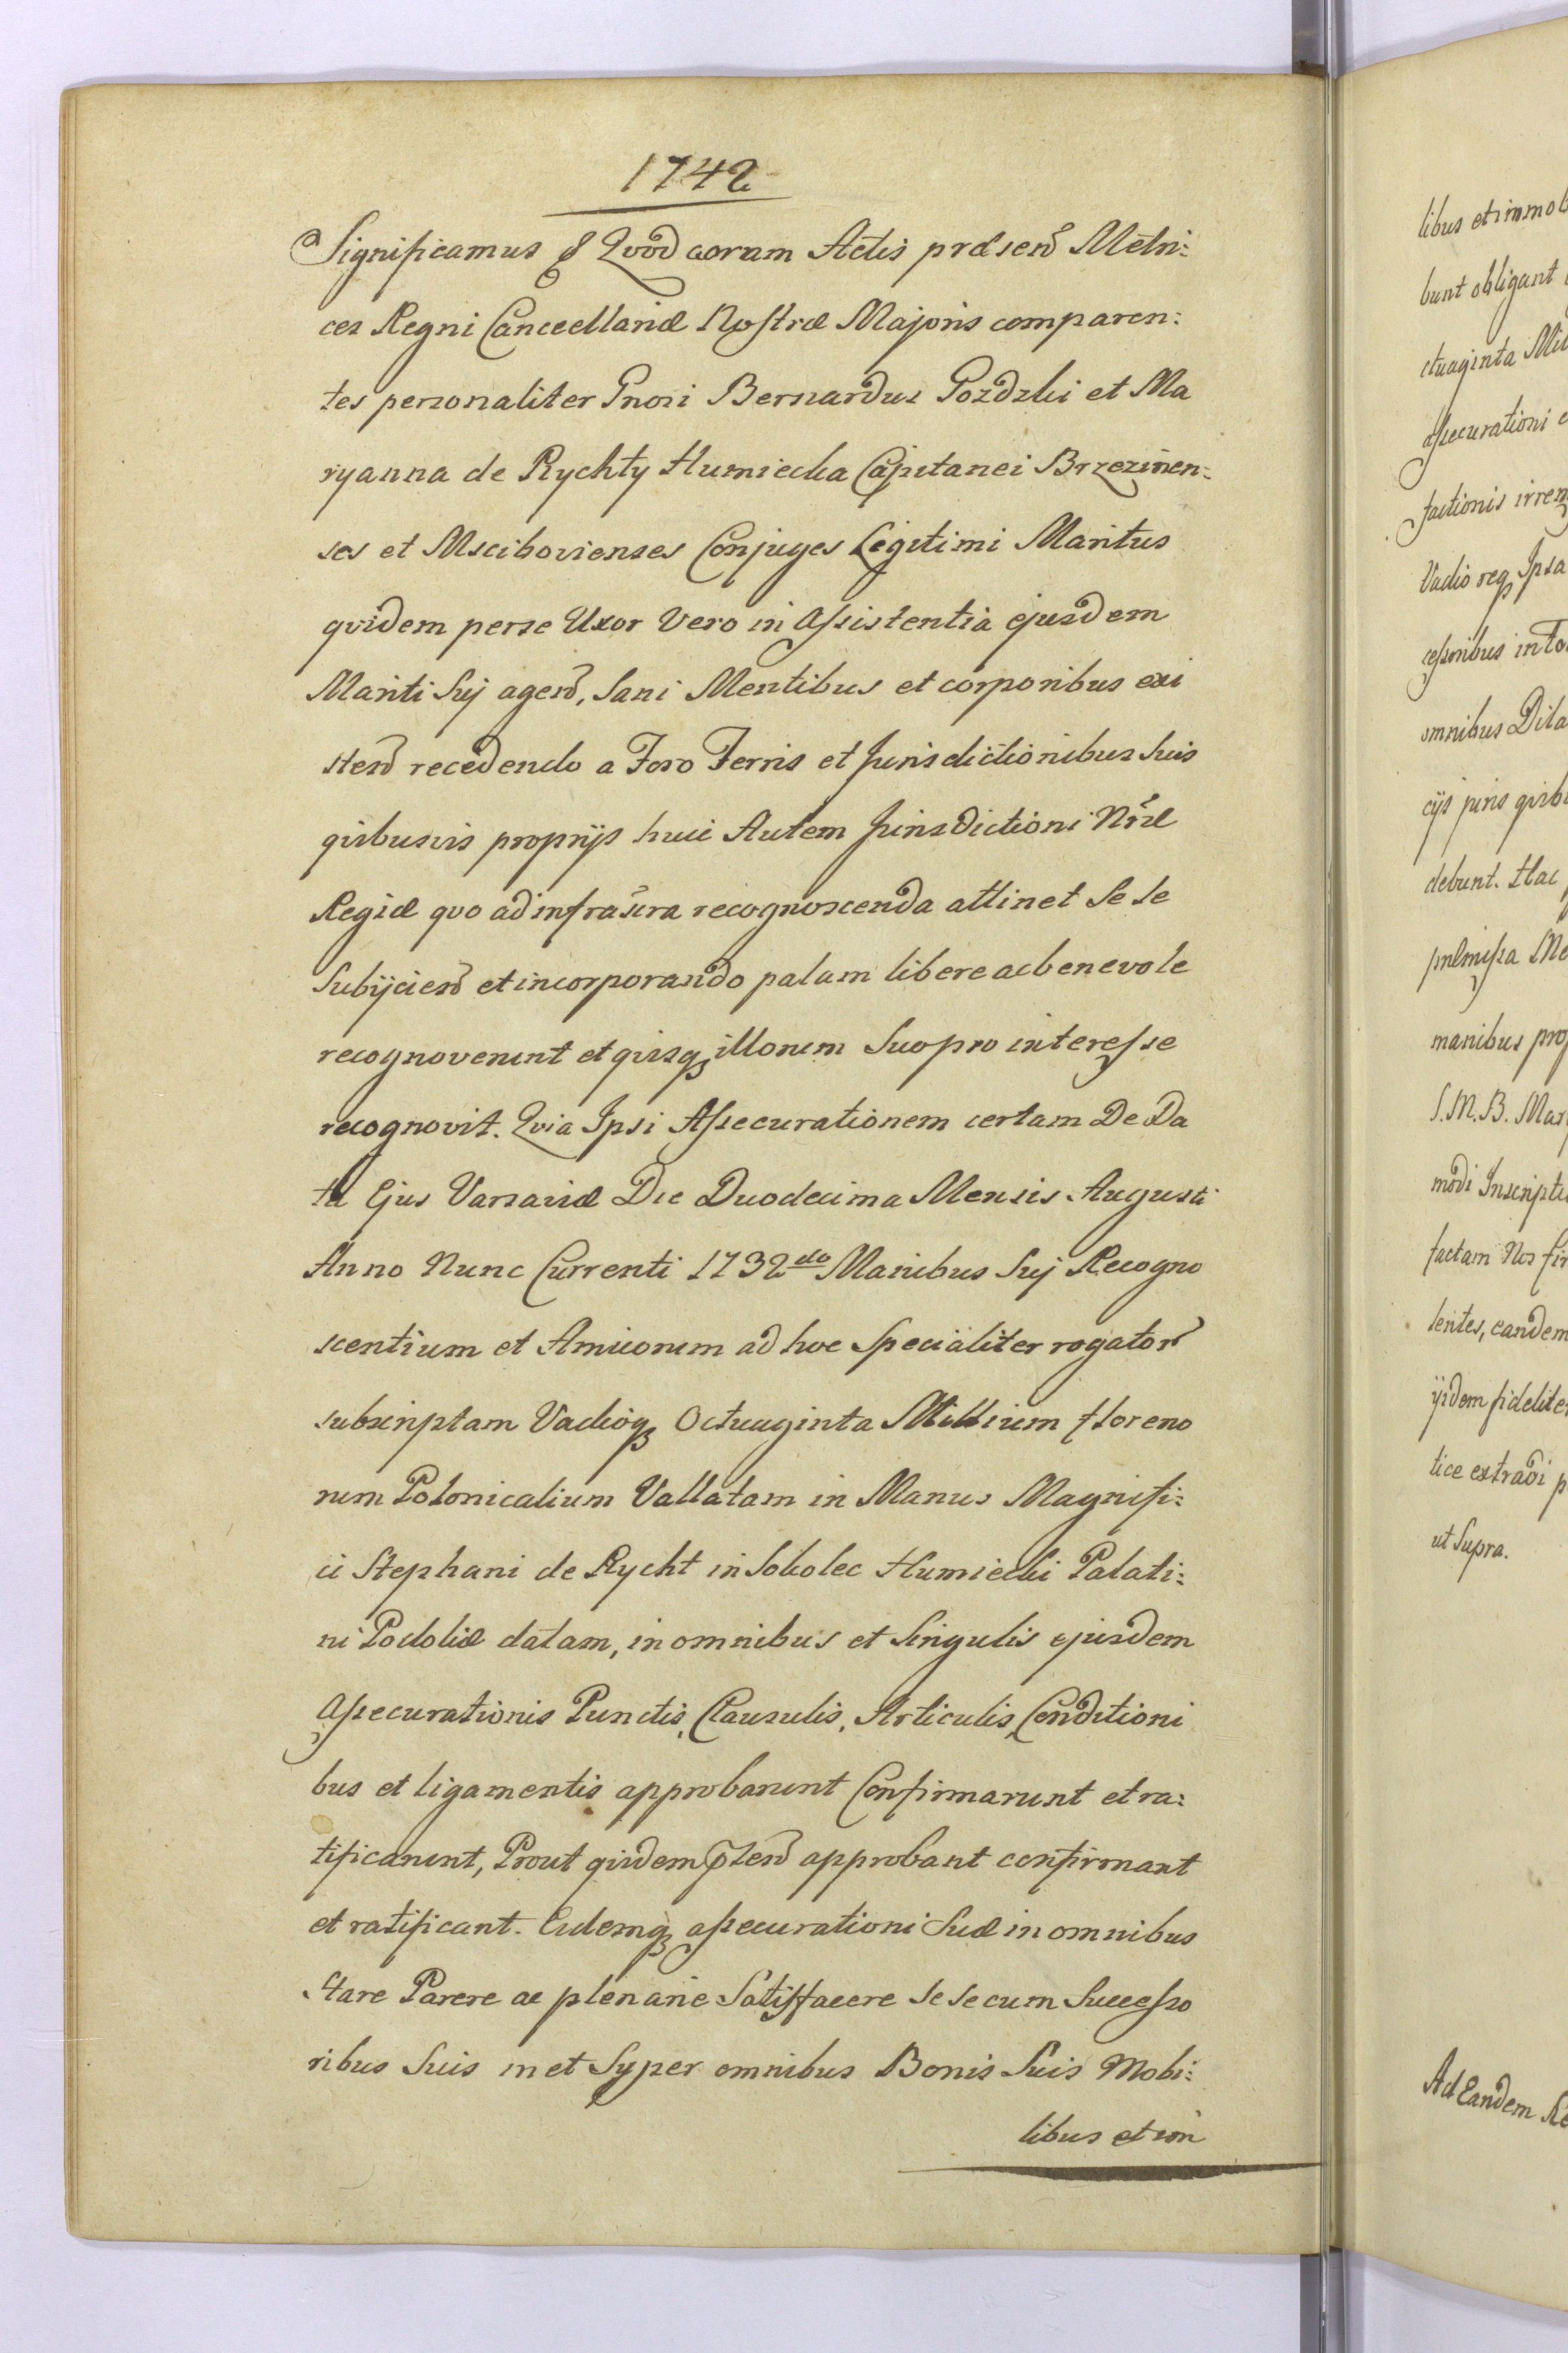 1742
Significamus & Qvod coram Actis præsen Metri:
ces Regni Cancellariæ Nostræ Majoris comparen:
tes personaliter Gnosi Bernardus Pozdzki et Ma
ryanna de Rychty Humiecka Capitanei Brzezinen:
ses et Mscibovienses Conjuges Legitimi Maritus
qvidem perse Uxor Vero in Assistentia ejusdem
Mariti Suj agen, Sani Mentibus et corporibus exi
sten recedendo a Foro Terris et Jurisdictionibus Suis
qvibusvis proprijs huic Autem Jurisdictioni Nræ
Regiæ qvo ad infrascra recognoscenda attinet Se Se
Subijcien et incorporando palam libere ac benevole
recognoverunt et qvisq illorum Suo pro interesse
recognovit. Qvia Ipsi Assecurationem certam De Da
ta Ejus Varsaviæ Die Duodecima Mensis Augusti
Anno Nunc Currenti 1732do Manibus Suj Recogno
scentium et Amicorum ad hoc Specialiter rogator
subscriptam Vadioq Octuaginta Millium floreno
rum Polonicalium Vallatam in Manus Magnifi:
ci Stephani de Rycht in Sokolec Humiecki Palati:
ni Podoliæ datam, in omnibus et Singulis ejusdem
Assecurationis Punctis, Clausulis, Articulis, Conditioni
bus et ligamentis approbarunt Confirmarunt et ra:
tificarunt, Prout qvidem pten approbant confirmant
et ratificant. Eidemq assecurationi Suæ in omnibus
Stare Parere ac plenarie Satisfacere Se Se cum Successo
ribus Suis in et Super omnibus Bonis Suis Mobi:
libus et im
libus et immob
bunt obligant
ctuaginta Mil
assecurationi
factionis irrem
Vadio req Ipsa
cessoribus in
omnibus Dila
cijs juris qvib
debunt. Hac
præmissa Me
manibus prop
S.M.B. Mar
modi Inscripti
factam Nos
tentes, eandem
ijsdem fidelite
tice extradi p
ut Supra.
Ad Eandem Re